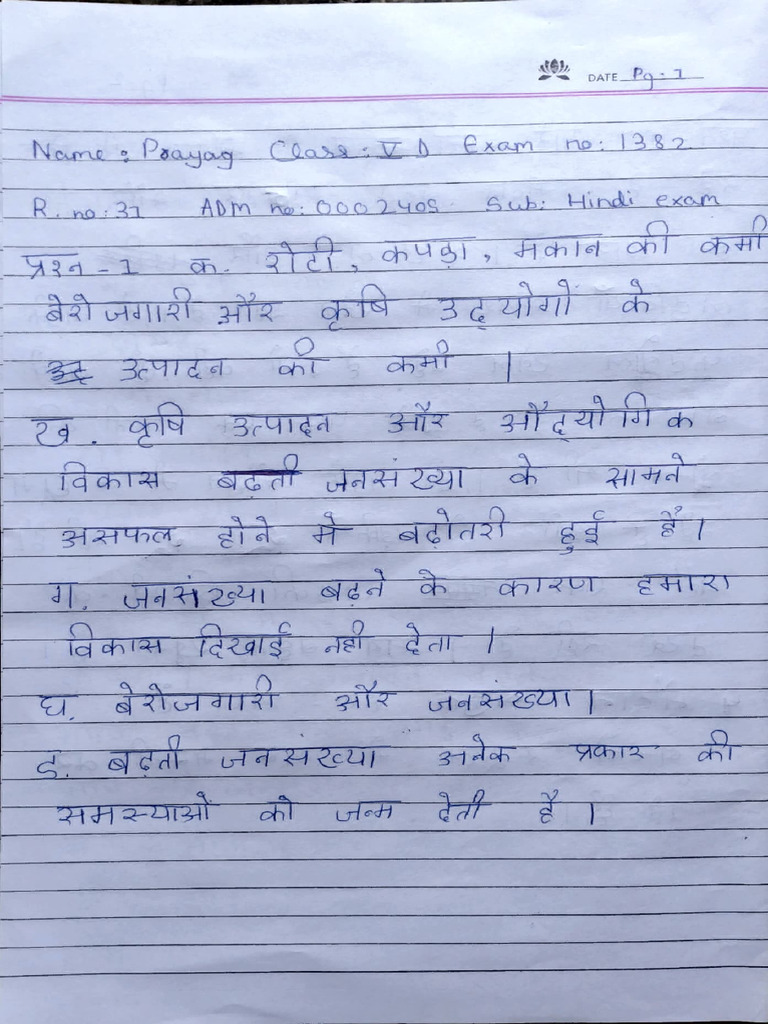 DATE Pg-1
Name: Prayag Class: V D Exam no: 1382
R. no: 31 ADM no: 0002405 Sub: Hindi exam
प्रश्न - 1 क. रोटी, कपड़ा, मकान की कमी
बेरोजगारी और कृषि उद्योगों के
उत्पादन की कमी ।
ख. कृषि उत्पादन और औद्योगिक
विकास बढ़ती जनसंख्या के सामने
असफल होने मे बढ़ोतरी हुई है।
ग. जनसंख्या बढ़ने के कारण हमारा
विकास दिखाई नही देता ।
घ. बेरोजगारी और जनसंख्या ।
ड. बढ़ती जनसंख्या अनेक प्रकार की
समस्याओं को जन्म देती है ।